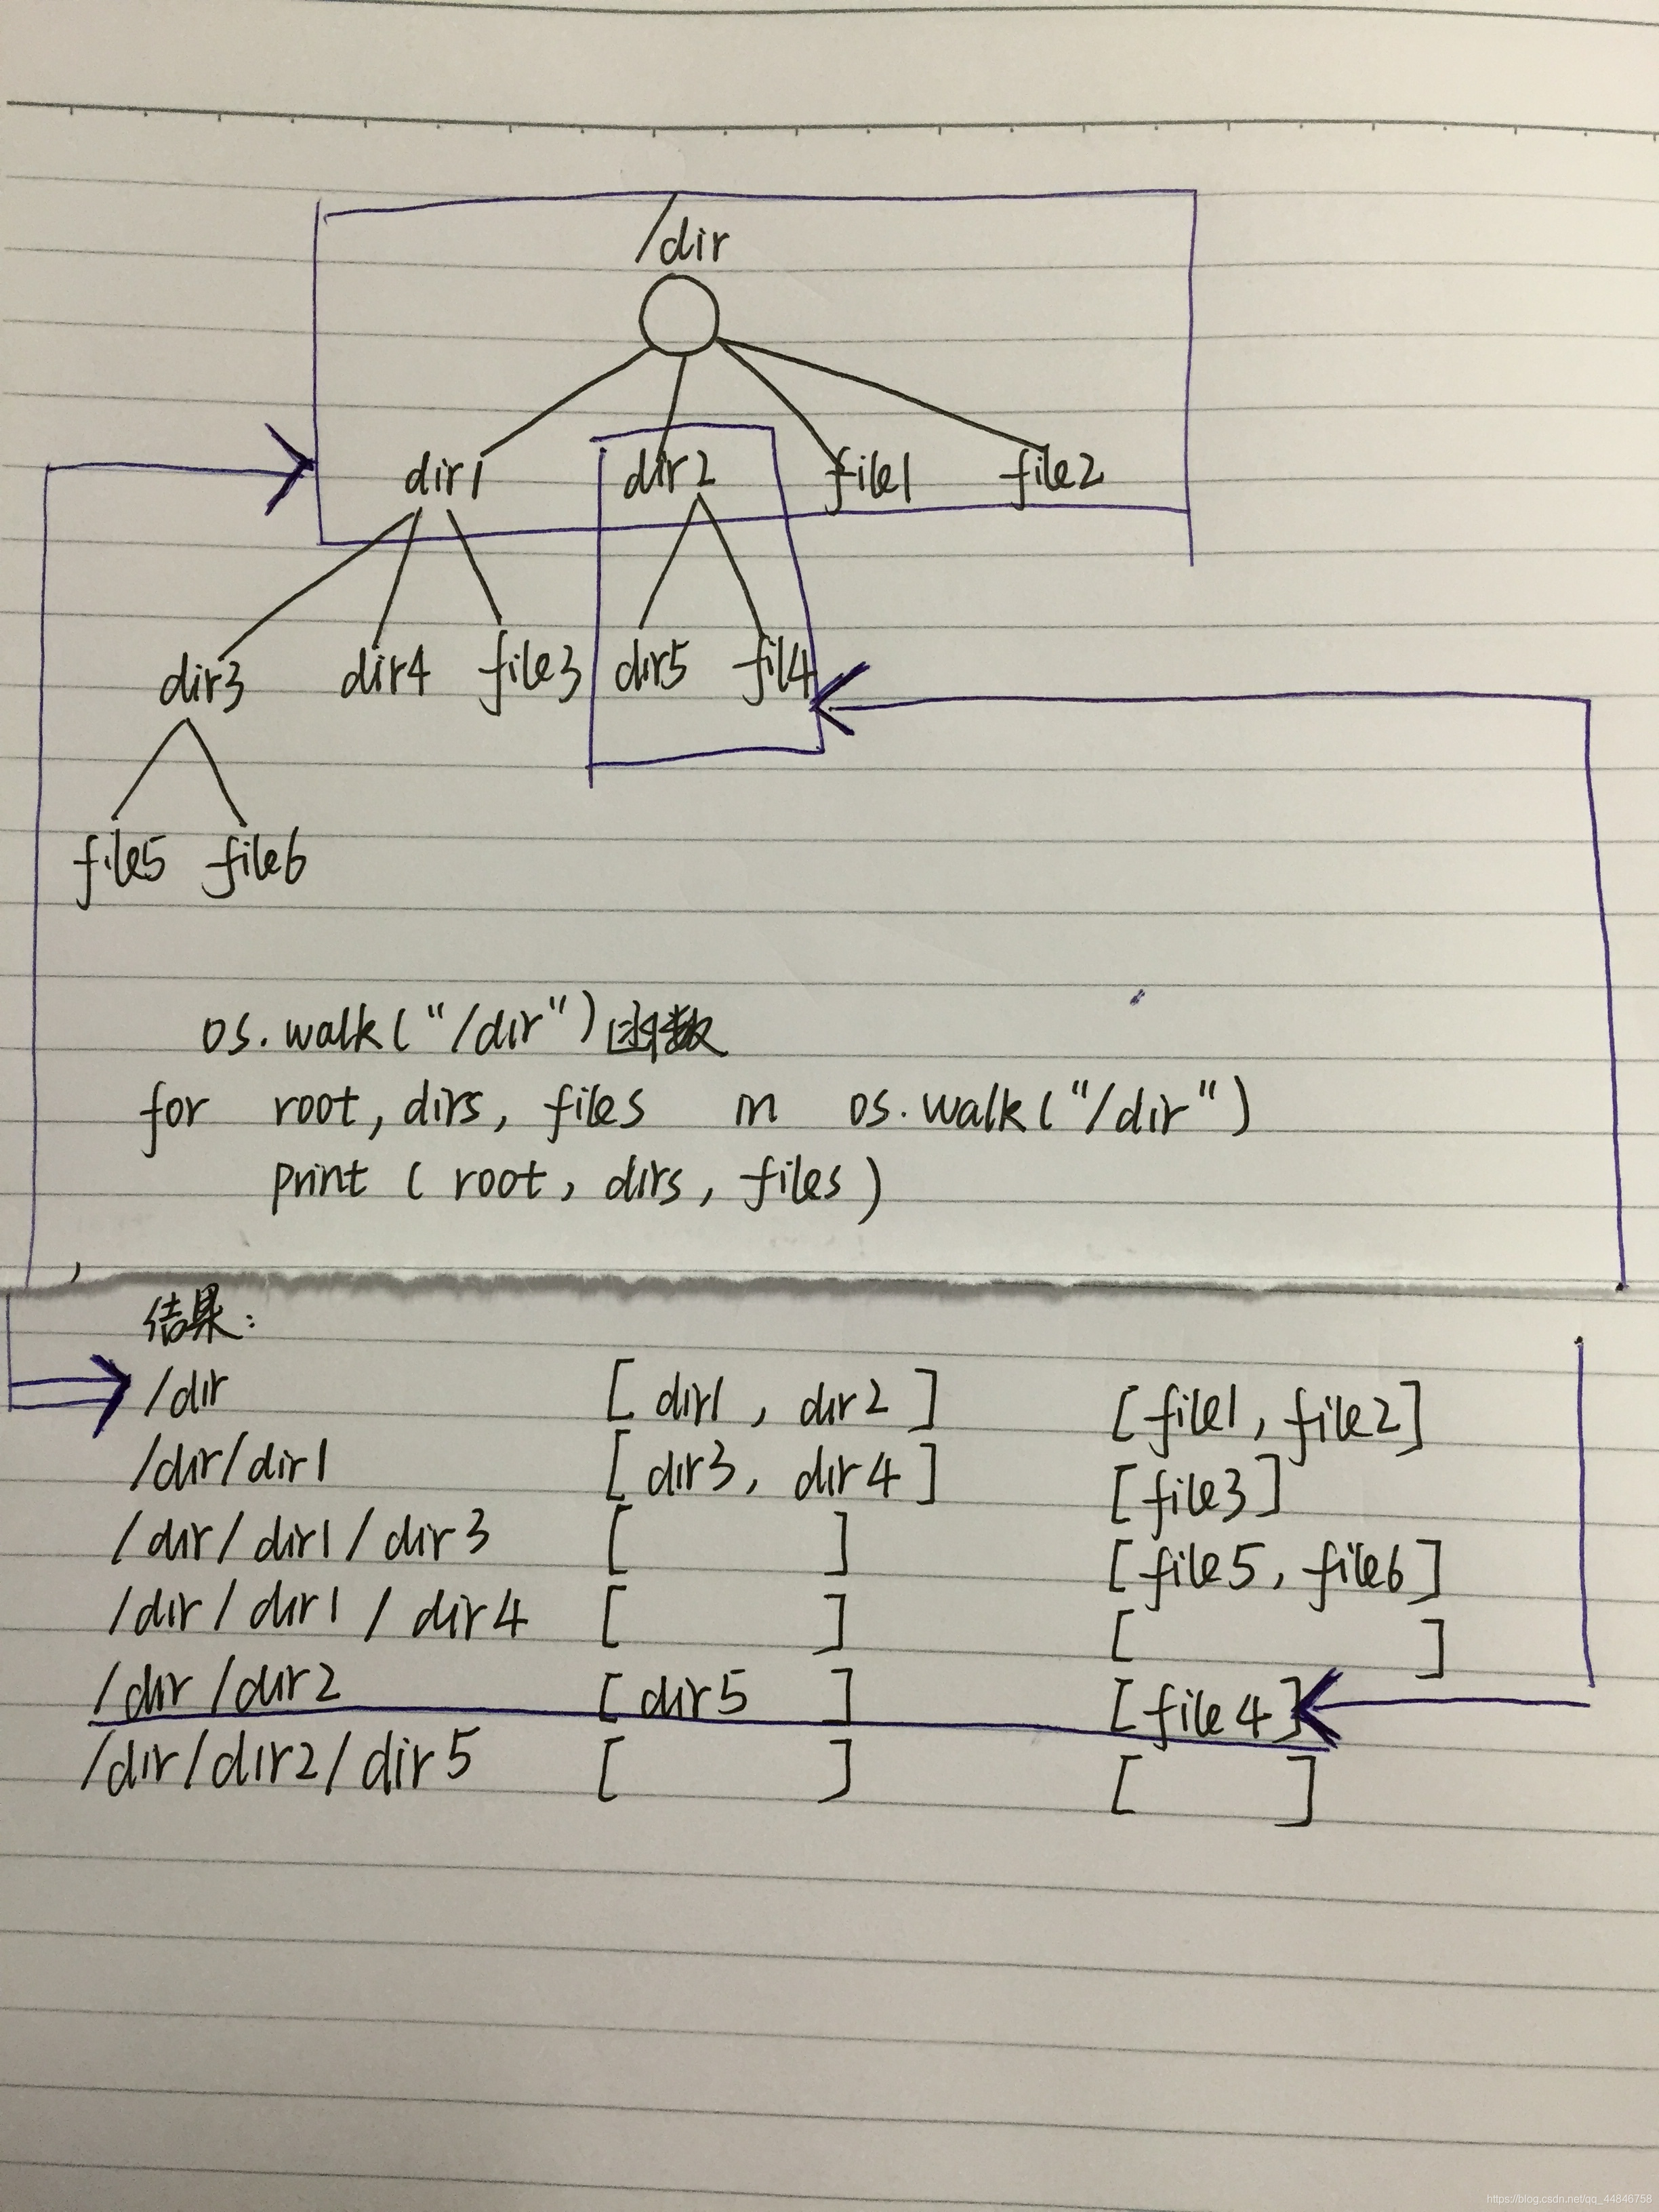 /dir
dir1 dir2 file1 file2
dir3 dir4 file3 dir5 fil4
file5 file6
os.walk("/dir")函数
for root, dirs, files in os.walk("/dir")
print ( root, dirs, files )
结果:
/dir [ dir1 , dir2 ] [file1, file2]
/dir/dir1 [ dir3, dir4 ] [file3]
/dir/dir1/dir3 [ ] [file5, file6]
/dir/dir1/dir4 [ ] [ ]
/dir/dir2 [ dir5 ] [file4]
/dir/dir2/dir5 [ ] [ ]
https://blog.csdn.net/qq_44846758